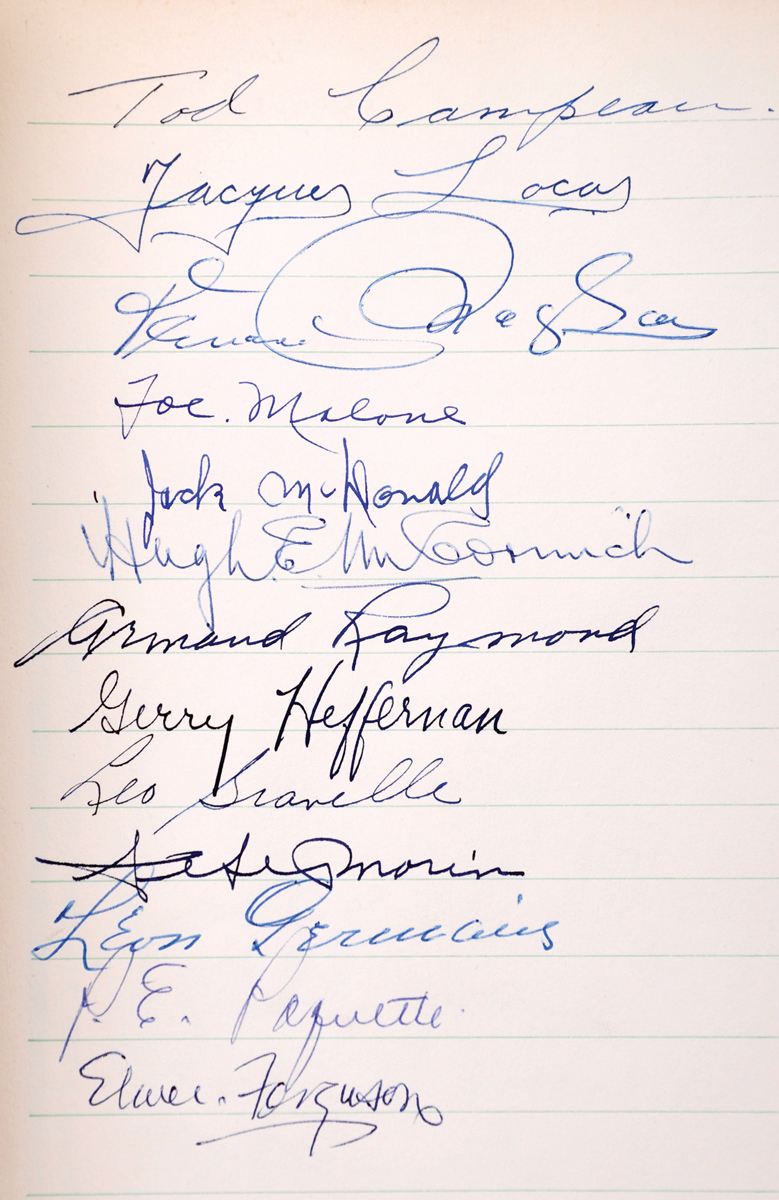 Tod Campeau.
Jacques Locas
Joe. Malone
Jack McDonald
Hugh. E. McCormick
Armand Raymond
Gerry Heffernan
Leo Gravelle
Pete Morin
Léon Germain
P. E. Paquette
Elmer. Ferguson